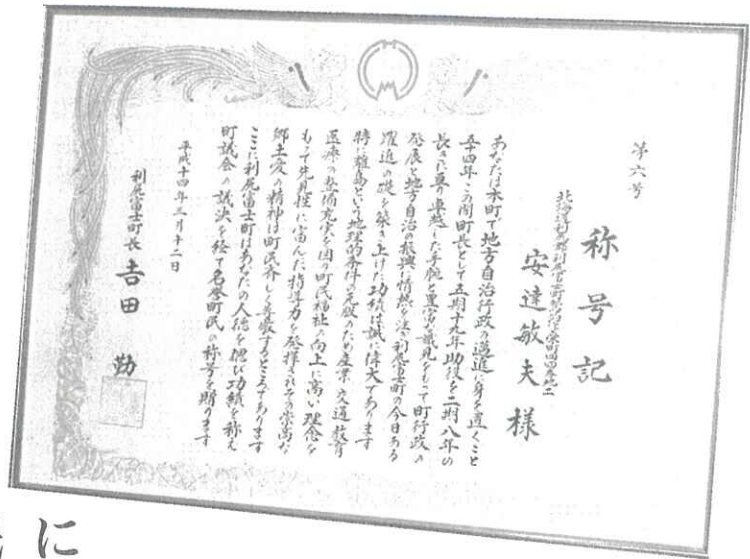 第六号
称号記
北海道利尻郡利尻富士町鴛泊字栄町四四番地二
安達敏夫様
あなたは本町で地方自治行政の邁進に身を置くこと
五十四年この間町長として五期十九年助役を二期八年の
長きに亘り卓越した手腕と豊富な識見をもって町行政の
発展と地方自治の振興に情熱を注ぎ利尻富士町の今日ある
躍進の礎を築き上げた功績は誠に偉大であります
特に離島という地理的条件の克服のため産業 交通 教育
医療の整備充実を図り町民福祉の向上に高い理念を
もって先見性に富んだ指導力を発揮されその崇高な
郷土愛の精神は町民斉しく尊敬するところであります
ここに利尻富士町はあなたの人徳を偲び功績を称え
町議会の議決を経て名誉町民の称号を贈ります
平成十四年三月十二日
利尻富士町長 吉田 勤
に